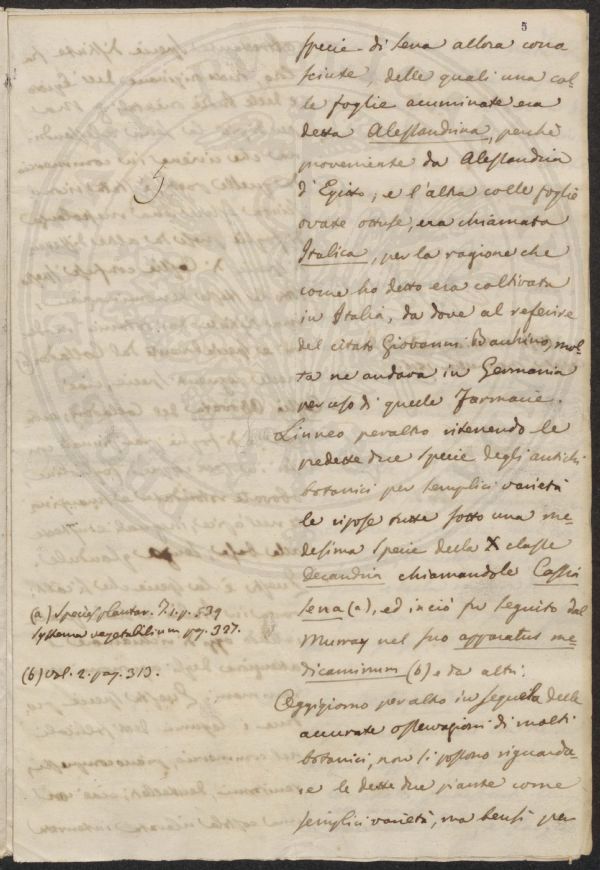 5
specie di sena allora cono
sciute, delle quali una col-
le foglie acuminate era
detta Alessandrina, perchè
proveniente da Alessandria
d'Egitto, e l'altra colle foglie
ovate ottuse, era chiamata
Italica, per la ragione che
come ho detto era coltivata
in Italia, da dove al referire
del citato Giovanni Bauhino, mol-
ta ne andava in Germania
per uso di quelle Farmacie.
Linneo peraltro ritenendo le
predette due specie degli antichi
botanici per semplici varietà
le ripose tutte sotto una me-
desima specie della X classe
Decandria chiamandole Cassia
sena (a), ed in ciò fu seguito dal
Murray nel suo apparatus me-
dicaminum (b) e da altri.
Oggigiorno peraltro in seguela delle
accurate osservazioni di molti
botanici, non si possono riguarda-
re le dette due piante come
semplici varietà, ma bensì per
(a) Species plantar. T. 1. p. 539
systema vegetabilium pag. 327.
(b) vol. 2. pag. 313.
5